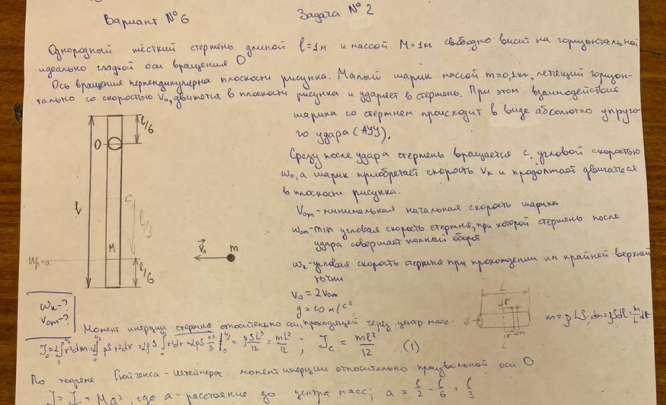 Вариант №6 Задача №2
Однородный жёсткий стержень длиной l=1м и массой M=1кг свободно висит на горизонтальной
идеально гладкой оси вращения O
Ось вращения перпендикулярна плоскости рисунка. Малый шарик массой m=0,1кг, летящий горизон-
тально со скоростью V₀, движется в плоскости рисунка и ударяет в стержень. При этом взаимодействие
шарика со стержнем происходит в виде абсолютно упруго-
го удара (АУУ).
Сразу после удара стержень вращается с угловой скоростью
ω₀, а шарик приобретает скорость Vк и продолжает двигаться
в плоскости рисунка.
V₀m - минимальная начальная скорость шарика
ω₀m - min угловая скорость стержня, при которой стержень после
удара совершает полный оборот
ωк - угловая скорость стержня при прохождении им крайней верхней
точки
V₀ = 2V₀m
g = 10 м/с²
l/6
O
l
C
l/3
M
V₀
m
Wp=0
l/6
ωк-?
V₀m-?
L
S
dr
r
Момент инерции стержня относительно оси, проходящей через центр масс
(1)
По теореме Гюйгенса-Штейнера момент инерции относительно произвольной оси O
где a - расстояние до центра масс; a = l/2 - l/6 = l/3